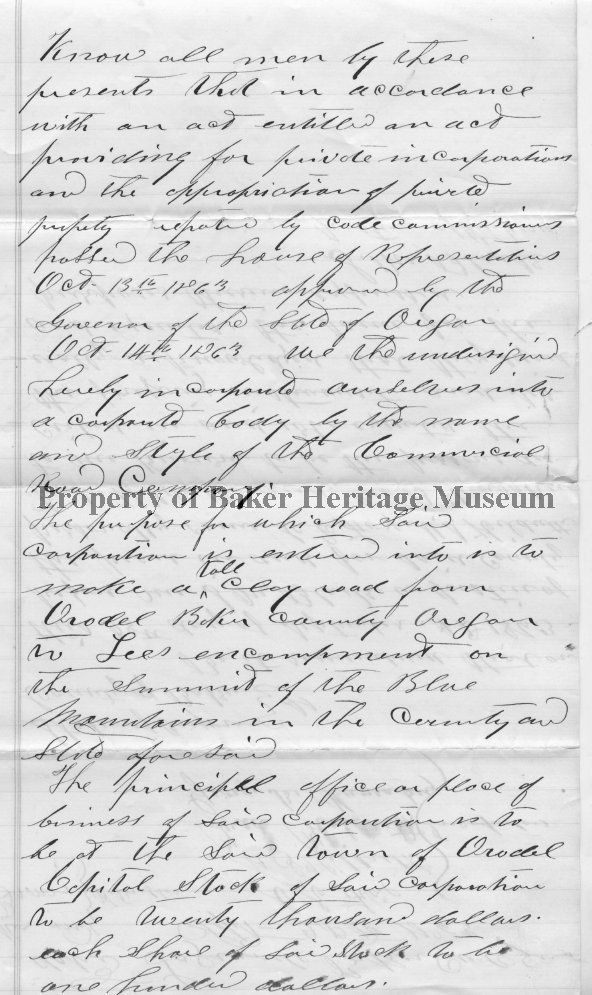 Know all men by these
presents that in accordance
with an act entitled an act
providing for private incorporations
and the appropriation of private
property reported by code commissioners
passed the house of Representatives
Oct. 13th 1863 approved by the
Governor of the State of Oregon
Oct. 14th 1863 we the undersigned
hereby incorporate ourselves into
a corporate body by the name
and Style of the Commercial
Road Company.
Property of Baker Heritage Museum
The purpose for which Said
corporation is entered into is to
make a toll Clay road from
Orodel Baker County Oregon
to Lees encampment on
the Summit of the Blue
Mountains in the County and
State aforesaid
The principal office or place of
business of Said corporation is to
be at the Said town of Orodel
Capital Stock of Said corporation
to be twenty thousand dollars.
each Share of Said Stock to be
one hundred dollars.